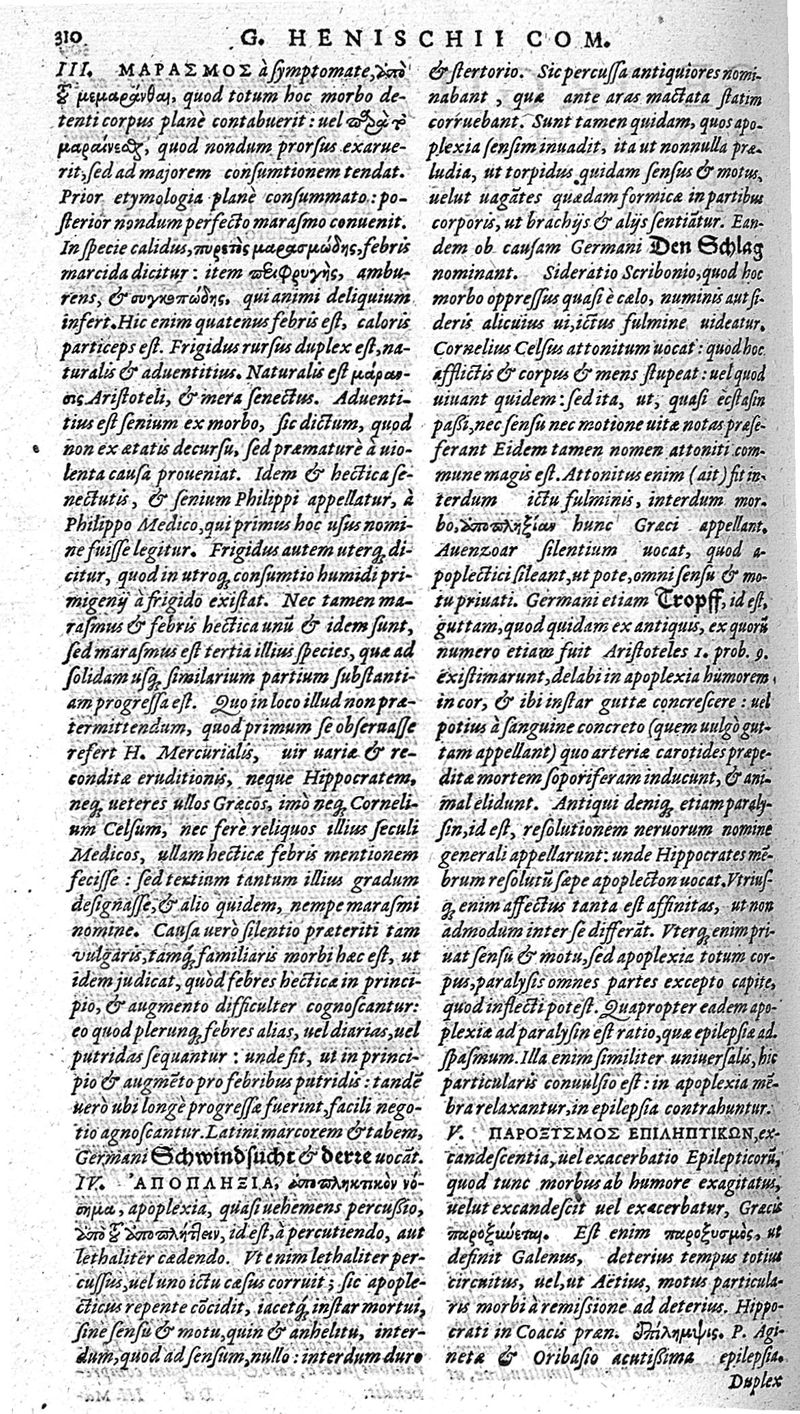 310
G. HENISCHII COM.
III. ΜΑΡΑΣΜΟΣ à symptomate, ἀπὸ
τȣ͂ μεμαράνθαι, quod totum hoc morbo de-
tenti corpus planè contabuerit: uel παρὰ τὸ
μαραίνεσθαι, quod nondum prorsus exarue-
rit, sed ad majorem consumtionem tendat.
Prior etymologia planè consummato: po-
sterior nondum perfecto marasmo conuenit.
In specie calidus, πυρετὸς μαρασμώδης, febris
marcida dicitur: item περιφρυγὴς, ambu-
rens, & συγκοπώδης, qui animi deliquium
infert. Hic enim quatenus febris est, caloris
particeps est. Frigidus rursus duplex est, na-
turalis & aduentitius. Naturalis est μάραν-
σις Aristoteli, & mera senectus. Aduenti-
tius est senium ex morbo, sic dictum, quod
non ex ætatis decursu, sed præmaturè à uio-
lenta causa proueniat. Idem & hectica se-
nectutis, & senium Philippi appellatur, à
Philippo Medico, qui primus hoc usus nomi-
ne fuisse legitur. Frigidus autem uterq; di-
citur, quod in utroq; consumtio humidi pri-
migenij à frigido existat. Nec tamen ma-
rasmus & febris hectica unũ & idem sunt,
sed marasmus est tertia illius species, quæ ad
solidam usq; similarium partium substanti-
am progressa est. Quo in loco illud non præ-
termittendum, quod primum se obseruasse
refert H. Mercurialis, uir uariæ & re-
conditæ eruditionis, neque Hippocratem,
neq; ueteres ullos Græcos, imò neq; Corneli-
um Celsum, nec ferè reliquos illius seculi
Medicos, ullam hecticæ febris mentionem
fecisse: sed textiam tantum illius gradum
designasse, & alio quidem, nempe marasmi
nomine. Causa uerò silentio præteriti tam
vulgaris, tamq; familiaris morbi hæc est, ut
idem judicat, quòd febres hecticæ in princi-
pio, & augmento difficulter cognoscantur:
eo quod plerunq; febres alias, uel diarias, uel
putridas sequantur: unde fit, ut in princi-
pio & augmẽto pro febribus putridis: tandẽ
uerò ubi longè progressæ fuerint, facili nego-
tio agnoscantur. Latini marcorem & tabem,
Germani Schwindsucht & derre uocãt.
IV. ἈΠΟΠΛΗΞΙΑ, ἀποπληκτικὸν νό-
σημα, apoplexia, quasi uehemens percussio,
ἀπὸ τȣ͂ ἀποπλήττειν, id est, à percutiendo, aut
lethaliter cædendo. Vt enim lethaliter per-
cussus, uel uno ictu cæsus corruit; sic apople-
cticus repente cõcidit, iacetq; instar mortui,
sine sensu & motu, quin & anhelitu, inter-
dum, quod ad sensum, nullo: interdum duro
& stertorio. Sic percussa antiquiores nomi-
nabant, quæ ante aras mactata statim
corruebant. Sunt tamen quidam, quos apo-
plexia sensim inuadit, ita ut nonnulla præ-
ludia, ut torpidus quidam sensus & motus,
uelut uagãtes quædam formicæ in partibus
corporis, ut brachijs & alijs sentiãtur. Ean-
dem ob causam Germani Den Schlag
nominant. Sideratio Scribonio, quod hoc
morbo oppressus quasi è cælo, numinis aut si-
deris alicuius ui, ictus fulmine uideatur.
Cornelius Celsus attonitum uocat: quod hoc
afflictis & corpus & mens stupeat: uel quod
uiuant quidem: sed ita, ut, quasi ecstasin
passi, nec sensu nec motione uitæ notas præse-
ferant Eidem tamen nomen attoniti com-
mune magis est. Attonitus enim (ait) fit in-
terdum ictu fulminis, interdum mor-
bo, ἀποπληξίαν hunc Græci appellant.
Auenzoar silentium uocat, quod a-
poplectici sileant, ut pote, omni sensu & mo-
tu priuati. Germani etiam Tropff, id est,
guttam, quod quidam ex antiquis, ex quorũ
numero etiam fuit Aristoteles 1. prob. 9.
existimarunt, delabi in apoplexia humorem
in cor, & ibi instar guttæ concrescere: uel
potius à sanguine concreto (quem uulgò gut-
tam appellant) quo arteriæ carotides præpe-
ditæ mortem soporiferam inducunt, & ani-
mal elidunt. Antiqui deniq; etiam paraly-
sin, id est, resolutionem neruorum nomine
generali appellarunt: unde Hippocrates mẽ-
brum resolutũ sæpe apoplecton uocat. Vtrius-
q; enim affectus tanta est affinitas, ut non
admodum inter se differãt. Vterq; enim pri-
uat sensu & motu, sed apoplexia totum cor-
pus, paralysis omnes partes excepto capite,
quod inflecti potest. Quapropter eadem apo-
plexiæ ad paralysin est ratio, quæ epilepsiæ ad
spasmum. Illa enim similiter uniuersalis, hic
particularis conuulsio est: in apoplexia mẽ-
bra relaxantur, in epilepsia contrahuntur.
V. ΠΑΡΟΞΥΣΜΟΣ ΕΠΙΛΗΠΤΙΚΩΝ, ex-
candescentia, uel exacerbatio Epilepticorũ,
quod tunc morbus ab humore exagitatus,
uelut excandescit uel exacerbatur, Græcis
παροξιώεται. Est enim παροξυσμὸς, ut
definit Galenus, deterius tempus totius
circuitus, uel, ut Aëtius, motus particula-
ris morbi à remissione ad deterius. Hippo-
crati in Coacis præn. ἐπίλημψις. P. Agi-
netæ & Oribasio acutißima epilepsia.
Duplex